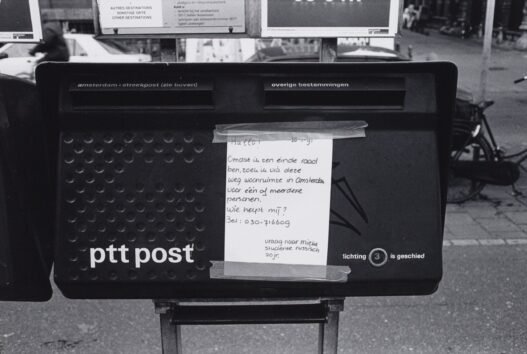 AUTRES DESTINATIONS
SONSTIGE ORTE
OTHER DESTINATIONS
amsterdam + streekpost (zie boven)
overige bestemmingen
Hallo!
Omdat ik ten einde raad
ben, zoek ik via deze
weg woonruimte in Amsterdam
voor één of meerdere
personen.
Wie helpt mij?
Tel: 030-716609
vraag naar Mieke
studente Russisch
20 jr.
ptt post
lichting 3 is geschied